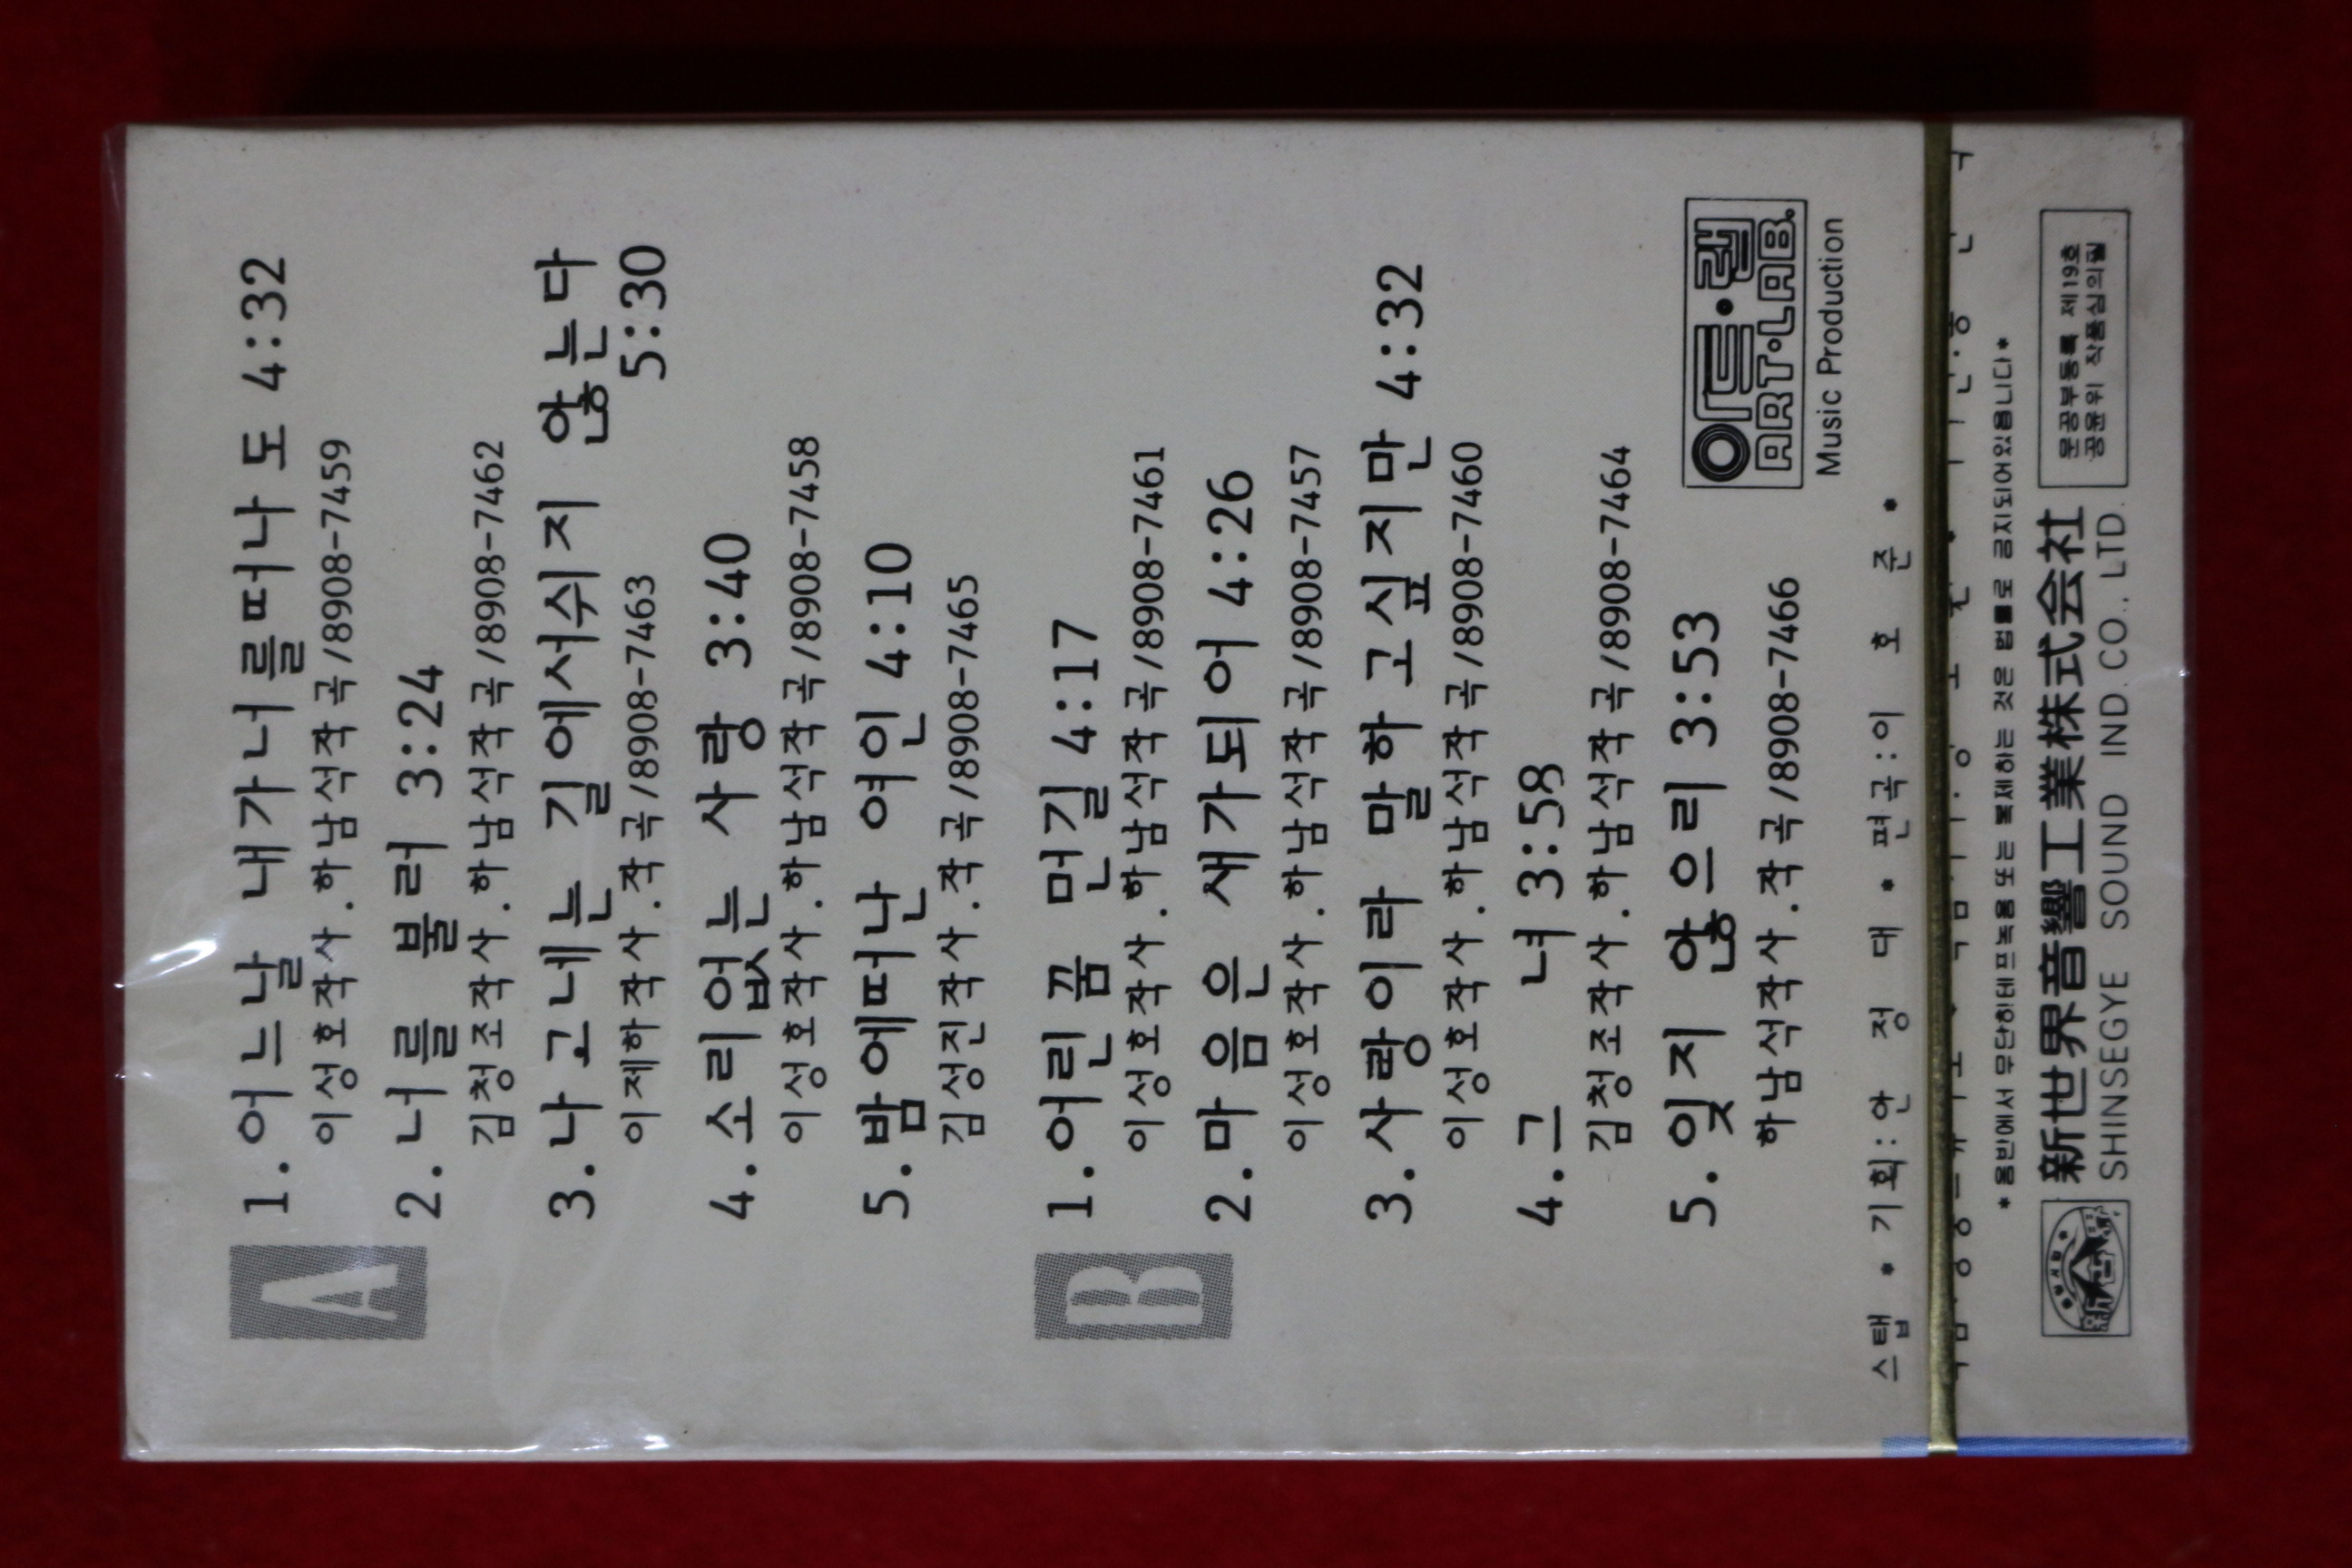 A
1. 어느날 내가너를떠나도 4:32
이성호작사.하남석작곡/8908-7459
2. 너를 불러 3:24
김청조작사.하남석작곡/8908-7462
3. 나고네는 길에서쉬지 않는다
5:30
이제하작사.작곡/8908-7463
4. 소리없는 사랑 3:40
이성호작사.하남석작곡/8908-7458
5. 밤에떠난 여인 4:10
김성진작사.작곡/8908-7465
B
1. 어린꿈 먼길 4:17
이성호작사.하남석작곡/8908-7461
2. 마음은 새가되어 4:26
이성호작사.하남석작곡/8908-7457
3. 사랑이라 말하고싶지만 4:32
이성호작사.하남석작곡/8908-7460
4. 그 녀 3:58
김청조작사.하남석작곡/8908-7464
5. 잊지 않으리 3:53
하남석작사.작곡/8908-7466
아트·랩
ART·LAB.
Music Production
스탭 * 기획:안 정 대 * 편곡:이 호 준 *
*음반에서 무단히테프녹음 또는 복제하는 것은 법률로 금지되어있읍니다*
新世界音響工業株式会社
SHINSEGYE SOUND IND. CO., LTD.
문공부등록 제19호
공윤위 작품심의필